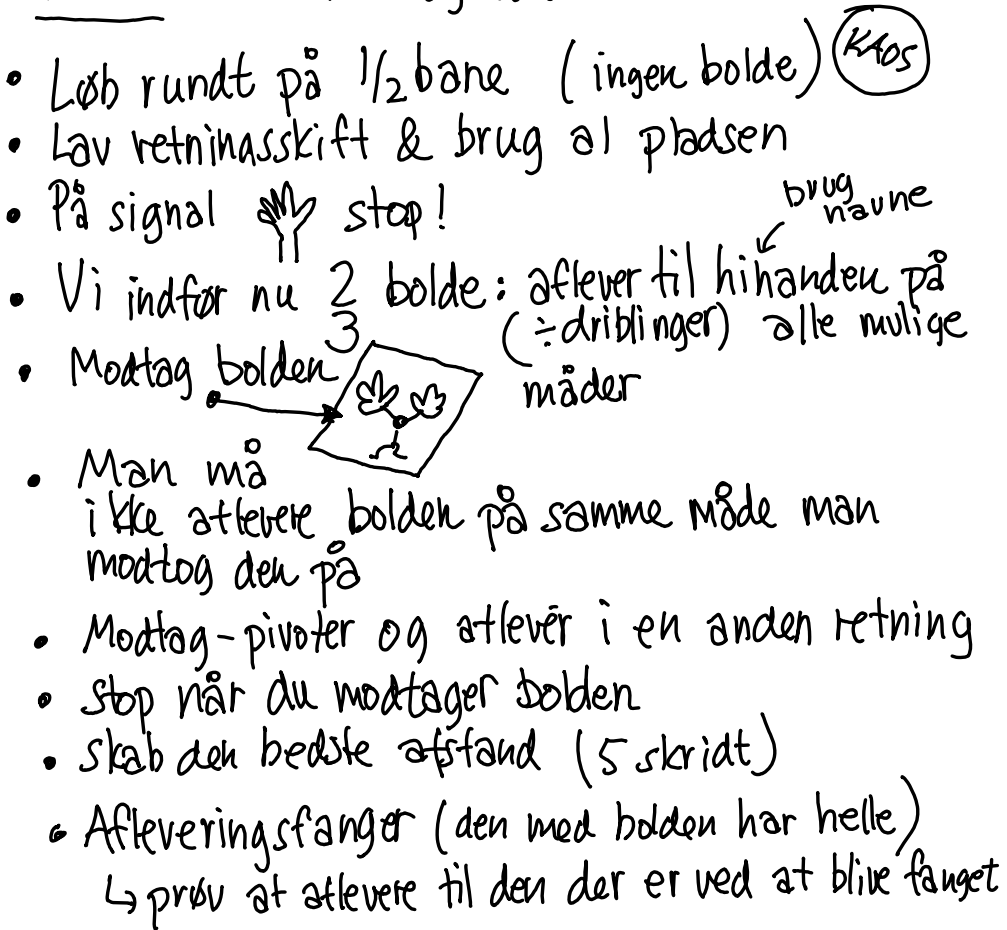 • Løb rundt på 1/2 bane (ingen bolde) KAOS
• Lav retningsskift & brug al pladsen
• På signal stop!
brug
navne
• Vi indfør nu 2 bolde: aflever til hinanden på
3 (÷driblinger) alle mulige
• Modtag bolden
måder
• Man må
ikke aflevere bolden på samme måde man
modtog den på
• Modtag-pivoter og aflevér i en anden retning
• Stop når du modtager bolden
• Skab den bedste afstand (5 skridt)
• Afleveringsfanger (den med bolden har helle)
↳ prøv at aflevere til den der er ved at blive fanget